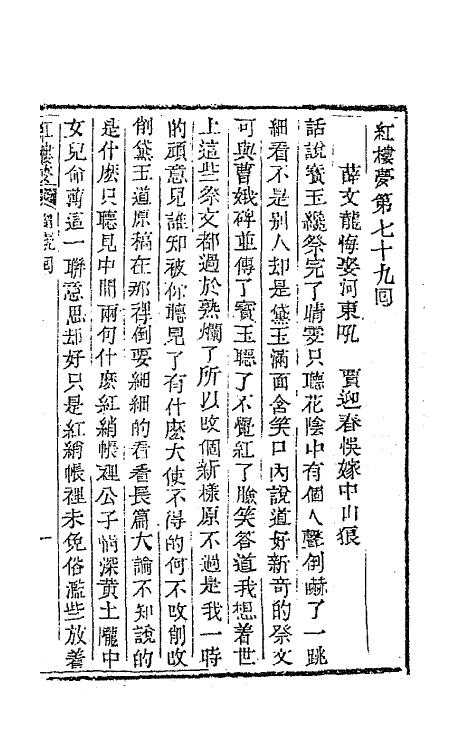 紅樓夢第七十九回
薛文龍悔娶河東吼　賈迎春悞嫁中山狼
話說寶玉纔祭完了晴雯只聽花陰中有個人聲倒嚇了一跳
細看不是别人却是黛玉滿面含笑口内說道好新奇的祭文
可與曹娥碑並傳了寳玉聽了不覺紅了臉笑答道我想着世
上這些祭文都過於熟爛了所以改個新樣原不過是我一時
的頑意兒誰知被你聽見了有什麽大使不得的何不改削改
削黛玉道原稿在那裡倒要細細的看看長篇大論不知說的
是什麽只聽見中間兩句什麽紅綃帳裡公子情深黄土隴中
女兒命薄這一聯意思却好只是紅綃帳裡未免俗濫些放着
紅樓夢
回
一